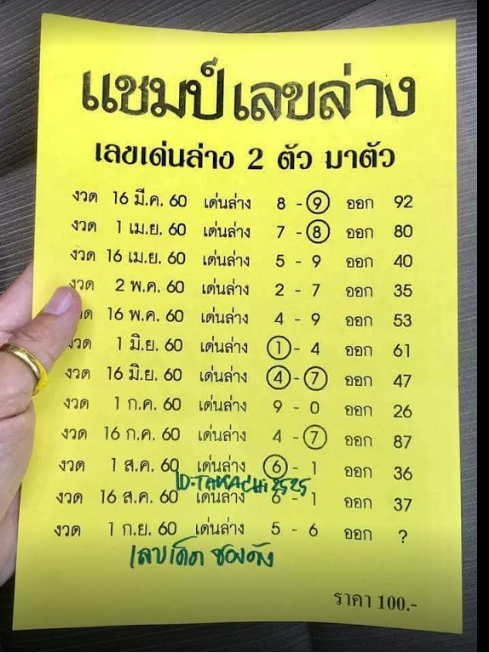 แชมป์เลขล่าง
เลขเด่นล่าง 2 ตัว มาตัว
งวด 16 มี.ค. 60 เด่นล่าง 8 - 9 ออก 92
งวด 1 เม.ย. 60 เด่นล่าง 7 - 8 ออก 80
งวด 16 เม.ย. 60 เด่นล่าง 5 - 9 ออก 40
งวด 2 พ.ค. 60 เด่นล่าง 2 - 7 ออก 35
งวด 16 พ.ค. 60 เด่นล่าง 4 - 9 ออก 53
งวด 1 มิ.ย. 60 เด่นล่าง 1 - 4 ออก 61
งวด 16 มิ.ย. 60 เด่นล่าง 4 - 7 ออก 47
งวด 1 ก.ค. 60 เด่นล่าง 9 - 0 ออก 26
งวด 16 ก.ค. 60 เด่นล่าง 4 - 7 ออก 87
งวด 1 ส.ค. 60 เด่นล่าง 6 - 1 ออก 36
ID.TAKACHI2525
งวด 16 ส.ค. 60 เด่นล่าง 6 - 1 ออก 37
งวด 1 ก.ย. 60 เด่นล่าง 5 - 6 ออก ?
เลขเด็ด ซองดัง
ราคา 100.-